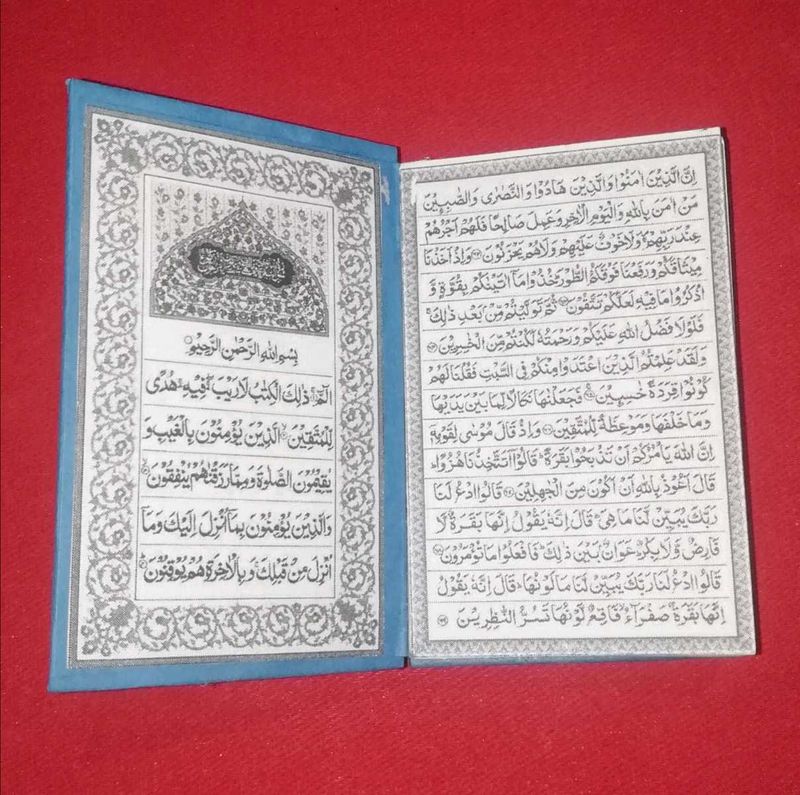 بِسْمِ اللهِ الرَّحْمٰنِ الرَّحِيْمِ
الٓمّٓ ذٰلِكَ الْكِتٰبُ لَا رَيْبَ فِيْهِ هُدًى
لِّلْمُتَّقِيْنَ الَّذِيْنَ يُؤْمِنُوْنَ بِالْغَيْبِ وَ
يُقِيْمُوْنَ الصَّلٰوةَ وَمِمَّا رَزَقْنٰهُمْ يُنْفِقُوْنَ
وَالَّذِيْنَ يُؤْمِنُوْنَ بِمَا اُنْزِلَ اِلَيْكَ وَمَا
اُنْزِلَ مِنْ قَبْلِكَ وَبِالْاٰخِرَةِ هُمْ يُوْقِنُوْنَ
اِنَّ الَّذِيْنَ اٰمَنُوْا وَالَّذِيْنَ هَادُوْا وَالنَّصٰرٰى وَالصّٰبِـِٕيْنَ
مَنْ اٰمَنَ بِاللهِ وَالْيَوْمِ الْاٰخِرِ وَعَمِلَ صَالِحًا فَلَهُمْ اَجْرُهُمْ
عِنْدَ رَبِّهِمْ وَلَا خَوْفٌ عَلَيْهِمْ وَلَا هُمْ يَحْزَنُوْنَ وَاِذْ اَخَذْنَا
مِيْثَاقَكُمْ وَرَفَعْنَا فَوْقَكُمُ الطُّوْرَ خُذُوْا مَا اٰتَيْنٰكُمْ بِقُوَّةٍ وَّ
اذْكُرُوْا مَا فِيْهِ لَعَلَّكُمْ تَتَّقُوْنَ ثُمَّ تَوَلَّيْتُمْ مِّنْ بَعْدِ ذٰلِكَ
فَلَوْلَا فَضْلُ اللهِ عَلَيْكُمْ وَرَحْمَتُهٗ لَكُنْتُمْ مِّنَ الْخٰسِرِيْنَ
وَلَقَدْ عَلِمْتُمُ الَّذِيْنَ اعْتَدَوْا مِنْكُمْ فِى السَّبْتِ فَقُلْنَا لَهُمْ
كُوْنُوْا قِرَدَةً خٰسِـِٕيْنَ فَجَعَلْنٰهَا نَكَالًا لِّمَا بَيْنَ يَدَيْهَا
وَمَا خَلْفَهَا وَمَوْعِظَةً لِّلْمُتَّقِيْنَ وَاِذْ قَالَ مُوْسٰى لِقَوْمِهٖ
اِنَّ اللهَ يَاْمُرُكُمْ اَنْ تَذْبَحُوْا بَقَرَةً قَالُوْا اَتَتَّخِذُنَا هُزُوًا
قَالَ اَعُوْذُ بِاللهِ اَنْ اَكُوْنَ مِنَ الْجٰهِلِيْنَ قَالُوا ادْعُ لَنَا
رَبَّكَ يُبَيِّنْ لَّنَا مَا هِىَ قَالَ اِنَّهٗ يَقُوْلُ اِنَّهَا بَقَرَةٌ لَّا
فَارِضٌ وَّلَا بِكْرٌ عَوَانٌ بَيْنَ ذٰلِكَ فَافْعَلُوْا مَا تُؤْمَرُوْنَ
قَالُوا ادْعُ لَنَا رَبَّكَ يُبَيِّنْ لَّنَا مَا لَوْنُهَا قَالَ اِنَّهٗ يَقُوْلُ
اِنَّهَا بَقَرَةٌ صَفْرَآءُ فَاقِعٌ لَّوْنُهَا تَسُرُّ النّٰظِرِيْنَ